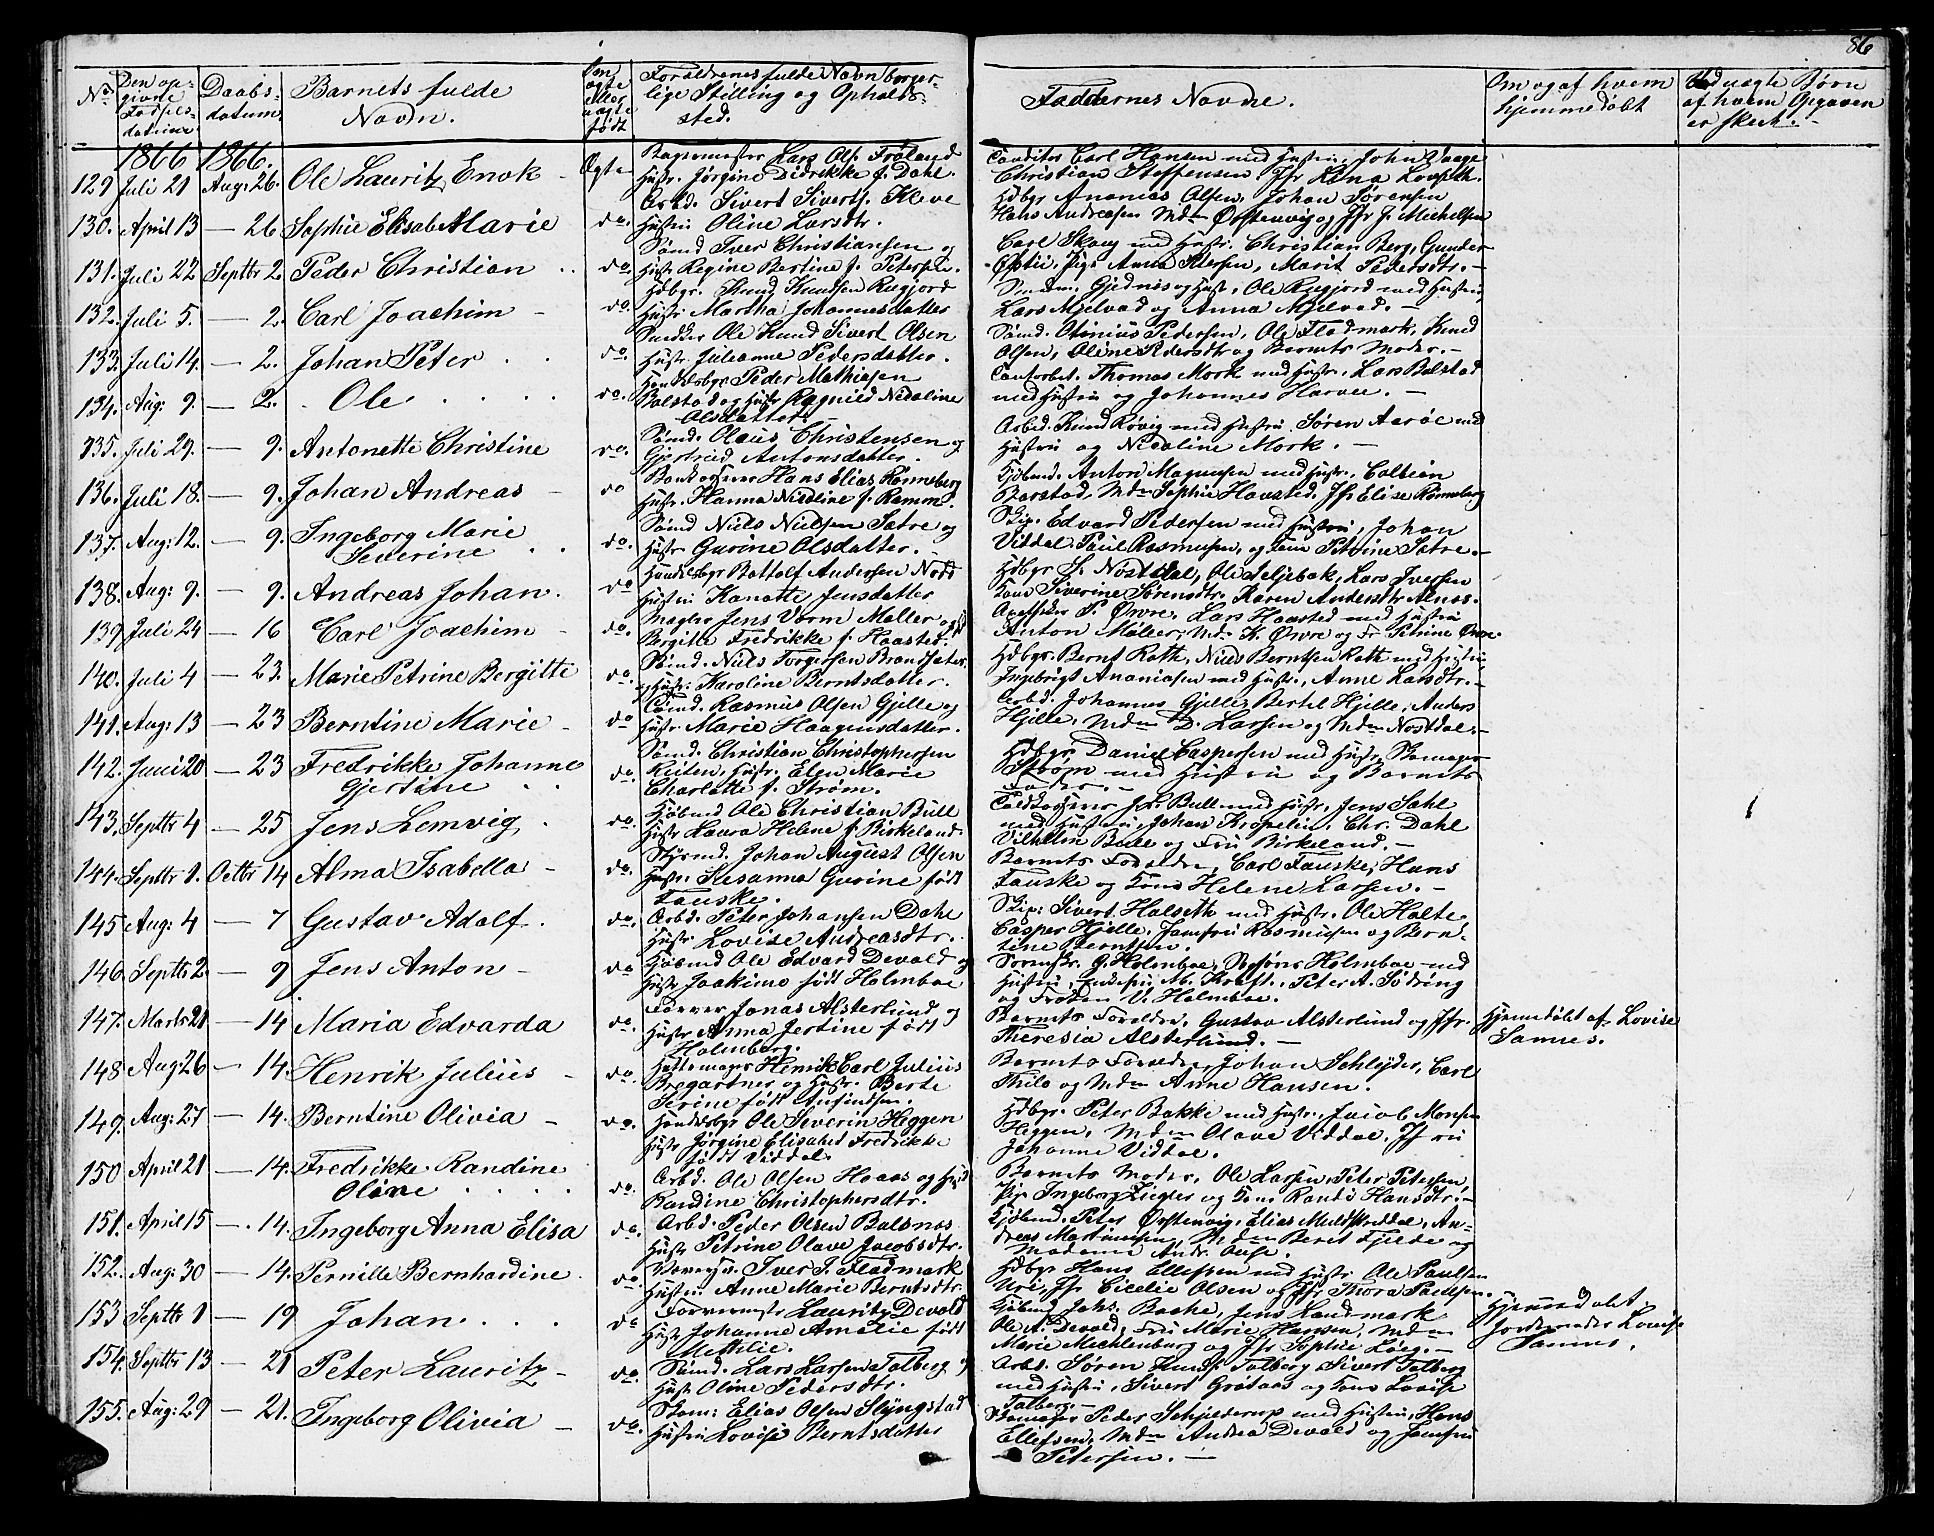 86
No
Den opgivne Fødselsdatum
Daabsdatum
Barnets fulde Navn.
Om ægte eller uægte født
Forældrenes fulde Navn borgerlige Stilling og Opholdssted.
Faddernes Navne.
Om og af hvem hjemmedøbt
Ved uægte Børn af hvem Opgaven er skeet.
1866 1866.
129 Juli 21 Aug: 26. Ole Lauritz Enok Ægte Lars Ols. Frøland
Hustr. Jørgine Didrikke f. Dahl.
Carl Hansen med Hustru, John Vaage
Christian Steffensen, Jfr Lena
130. April 13 — 26 Sophie Elisab Marie do Arbd. Sivert Siverts. Kleve
Hustru Oline Larsdtr.
Hdbgr Ananias Olsen, Johan Sørensen
Hans Andreasen Mdm Ørstenvig og Jfr J. Michelsen
131. Juli 22 Septbr 2. Peder Christian do. Sømd Iver Christiansen og
Hustr Regine Bertine f. Petersen.
Carl Skaug med Hustr. Christian Berg, Gunder
Pige Anna Petersen, Marit Pedersdtr.
132. Juli 5. — 2. Carl Joachim do Hdbgr. Knud Knudsen
Hustr Martha Johannesdatter
og Hustr, Ole med Hustru
Lars Mjelvad og Anna Mjelvad.
133. Juli 14. — 2. Johan Peter do. Ole Knud Sivert Olsen
Hustr. Julianne Pedersdatter.
Sømd. Pedersen, Ole Fladmark, Knud
Olsen, Oline Pedersdtr og Barnets Moder.
134. Aug: 9. — 2. Ole do. Peder Mathiasen
Bolstad og Hustr Ragnild Nicoline
Olsdatter.
Thomas Mork med Hustr. Lars Bolstad
med Hustru og Johannes
135. Juli 29. — 9. Antonette Christine do. Sømd. Olaus Christensen og
Gjertrud Antonsdatter.
Arbd. Knud Røvig med Hustru Søren Aarøe med
Hustru og Nicoline Mork.
136. Juli 18. — 9. Johan Andreas do Hans Elias Rønneberg
Hustr. Hanna Nicoline f. Ramm.
Kjøbmd. Anton Magnusen med Hustr.
Mdm Sophie Havsted, Jfr Elise Rønneberg
137. Aug: 12. — 9. Ingeborg Marie
Severine do. Sømd Niels Nielsen Sætre og
Hustr Gurine Olsdatter.
Skip. Edvard Pedersen med Hustru, Johan
Viddal Paul Rasmusen, og Petrine Sætre.
138. Aug: 9. — 9. Andreas Johan. do Handelsbgr Bottolf Andersen
Hustru Jensdatter
Hdbgr S. Nøstdal, Lars Iversen
Severine Karen Andersdtr
139 Juli 24 — 16 Carl Joachim do. Mægler Jens Vorm Møller og
Bergitte Fredrikke f. Haasted.
Apotheker P. Øvre, Lars Haasted med Hustru
Anton Møller, Mdm K. Øvre og Fr Petrine Øvre
140. Juli 4 — 23. Marie Petrine Bergitte do. Sømd. Niels Torgersen
og Hustr. Karoline Berntsdatter.
Hdbgr. Bernt Roth, Niels Berntsen Roth med Hustru
Ingebrigt Ananiasen med Hustr., Anne Larsdtr.
141. Aug: 13 — 23 Berntine Marie do Sømd. Rasmus Olsen Gjelle og
Hustr Marie Haagensdatter.
Arbd. Johannes Gjelle, Bertel Hjelle, Anders
Hjelle, Mdm D. Larsen og Mdm Nøstdal.
142. Juni 20 — 23 Fredrikke Johanne
Gjertine do. Sømd. Christian Christophersen
Hustr. Elen Marie
Charlotte f. Strøm.
Hdbgr Daniel Caspersen med Hustr.
Strøm med Hustru og Barnets
Fader.
143. Septbr 4 — 25 Jens Lemvig do. Kjøbmd Ole Christian Bull
Hustr Laura Helene f. Birkeland.
Bull med Hustr. Jens
med Hustru, Johan Chr. Dahl
Vilhelm Bull og Fru Birkeland.
144. Septbr 1. Octbr 14 Alma Isabella do. Styrmd. Johan August Olsen
Hustr. Susanna Gurine født
Fauske.
Barnets Forældre, Carl Fauske, Hans
Fauske og Helene Larsen.
145 Aug: 4 — 7 Gustav Adolf. do. Arbd. Peter Johansen Dahl
Hustr Lovise Andreasdtr.
Skip: Sivert Halseth med Hustr. Ole Holte,
Casper Hjelle, Jomfru Rasmusen og Berntine
Berntsen.
146. Septbr 2. — 9 Jens Anton do Kjøbmd Ole Edvard Devold og
Hustr Joakime født Holmboe
Sorenskr. G. Holmboe, Holmboe med
Hustru, M. Kraft, Peter A. Sødring
og Frøken V. Holmboe.
147. Marts 21 — 14 Maria Edvarda do. Farver Jonas Alsterlund og
Hustr Anna Jertine født
Holmberg.
Barnets Forældre, Gustav Alsterlund og Jfr.
Theresia Alsterlund.
Hjemmedøbt af Lovise
Samnes.
148 Aug 26 — 14. Henrik Julius do. Hattemager Henrik Carl Julius
Bregartner og Hustr. Berte
Serine født
Barnets Forældre, Johan Schlyder, Carl
Thilo og Mdm Anne Hansen.
149. Aug: 27 — 14. Berntine Olivia do. Handelsbgr Ole Severin Heggen
Hustr Jørgine Elisabet Fredrikke
født Viddal.
Hdbgr. Peter Bakke med Hustr., Jacob Monsen
Heggen, Mdm Olave Viddal, Jfr
Johanne Viddal.
150 April 21 — 14. Fredrikke Randine
Oline do. Arbd. Ole Olsen Haas og Hustr
Randine Christophersdtr.
Barnets Moder, Ole Larsen, Peter Petersen,
Ingeborg Ziegler og Randi Hansdtr.
151. April 15 — 14. Ingeborg Anna Elisa do. Arbd. Peder Olsen Balsnes
Hustr Petrine Olave Jacobsdtr.
Kjøbmd. Peter Ørstenvig, Elias Muldskreddal, Andreas
Martinusen, Mdm Berit Fjelde og
Madame Andr.
152. Aug: 30 — 14. Pernille Bernhardine do. Iver J. Fladmark
Hustru Anne Marie Berntsdtr.
Hdbgr Hans Ellefsen med Hustr. Ole Paulsen
Jfr Cicelie Olsen og Jfr Thora Paulsen.
153 Septbr 1 — 19 Johan do Lauritz Devold
Hustr Johanne Amalie født
Kjøbmd Johs. Bache, Jens Landmark
Ole A. Devold, Fru Marie Hansen, Mdm
Marie Mechlenburg og Jfr Sophie
Hjemmedøbt,
Jordemoder Lovise
Samnes.
154. Septbr 13 — 21 Peter Lauritz do. Sømd. Lars Larsen Talberg og
Hustr Oline Pedersdtr.
Arbd. Søren Knuds. Talberg Sivert Talberg
med Hustru, Sivert og Lovise
Talberg.
155. Aug: 29 — 21. Ingeborg Olivia do. Skom: Elias Olsen Slyngstad
Hustru Lovise Berntsdatter
Skomager Peder Schjelderup med Hustru, Hans
Ellefsen, Mdm Andrea Devold og Jomfru
Petersen.